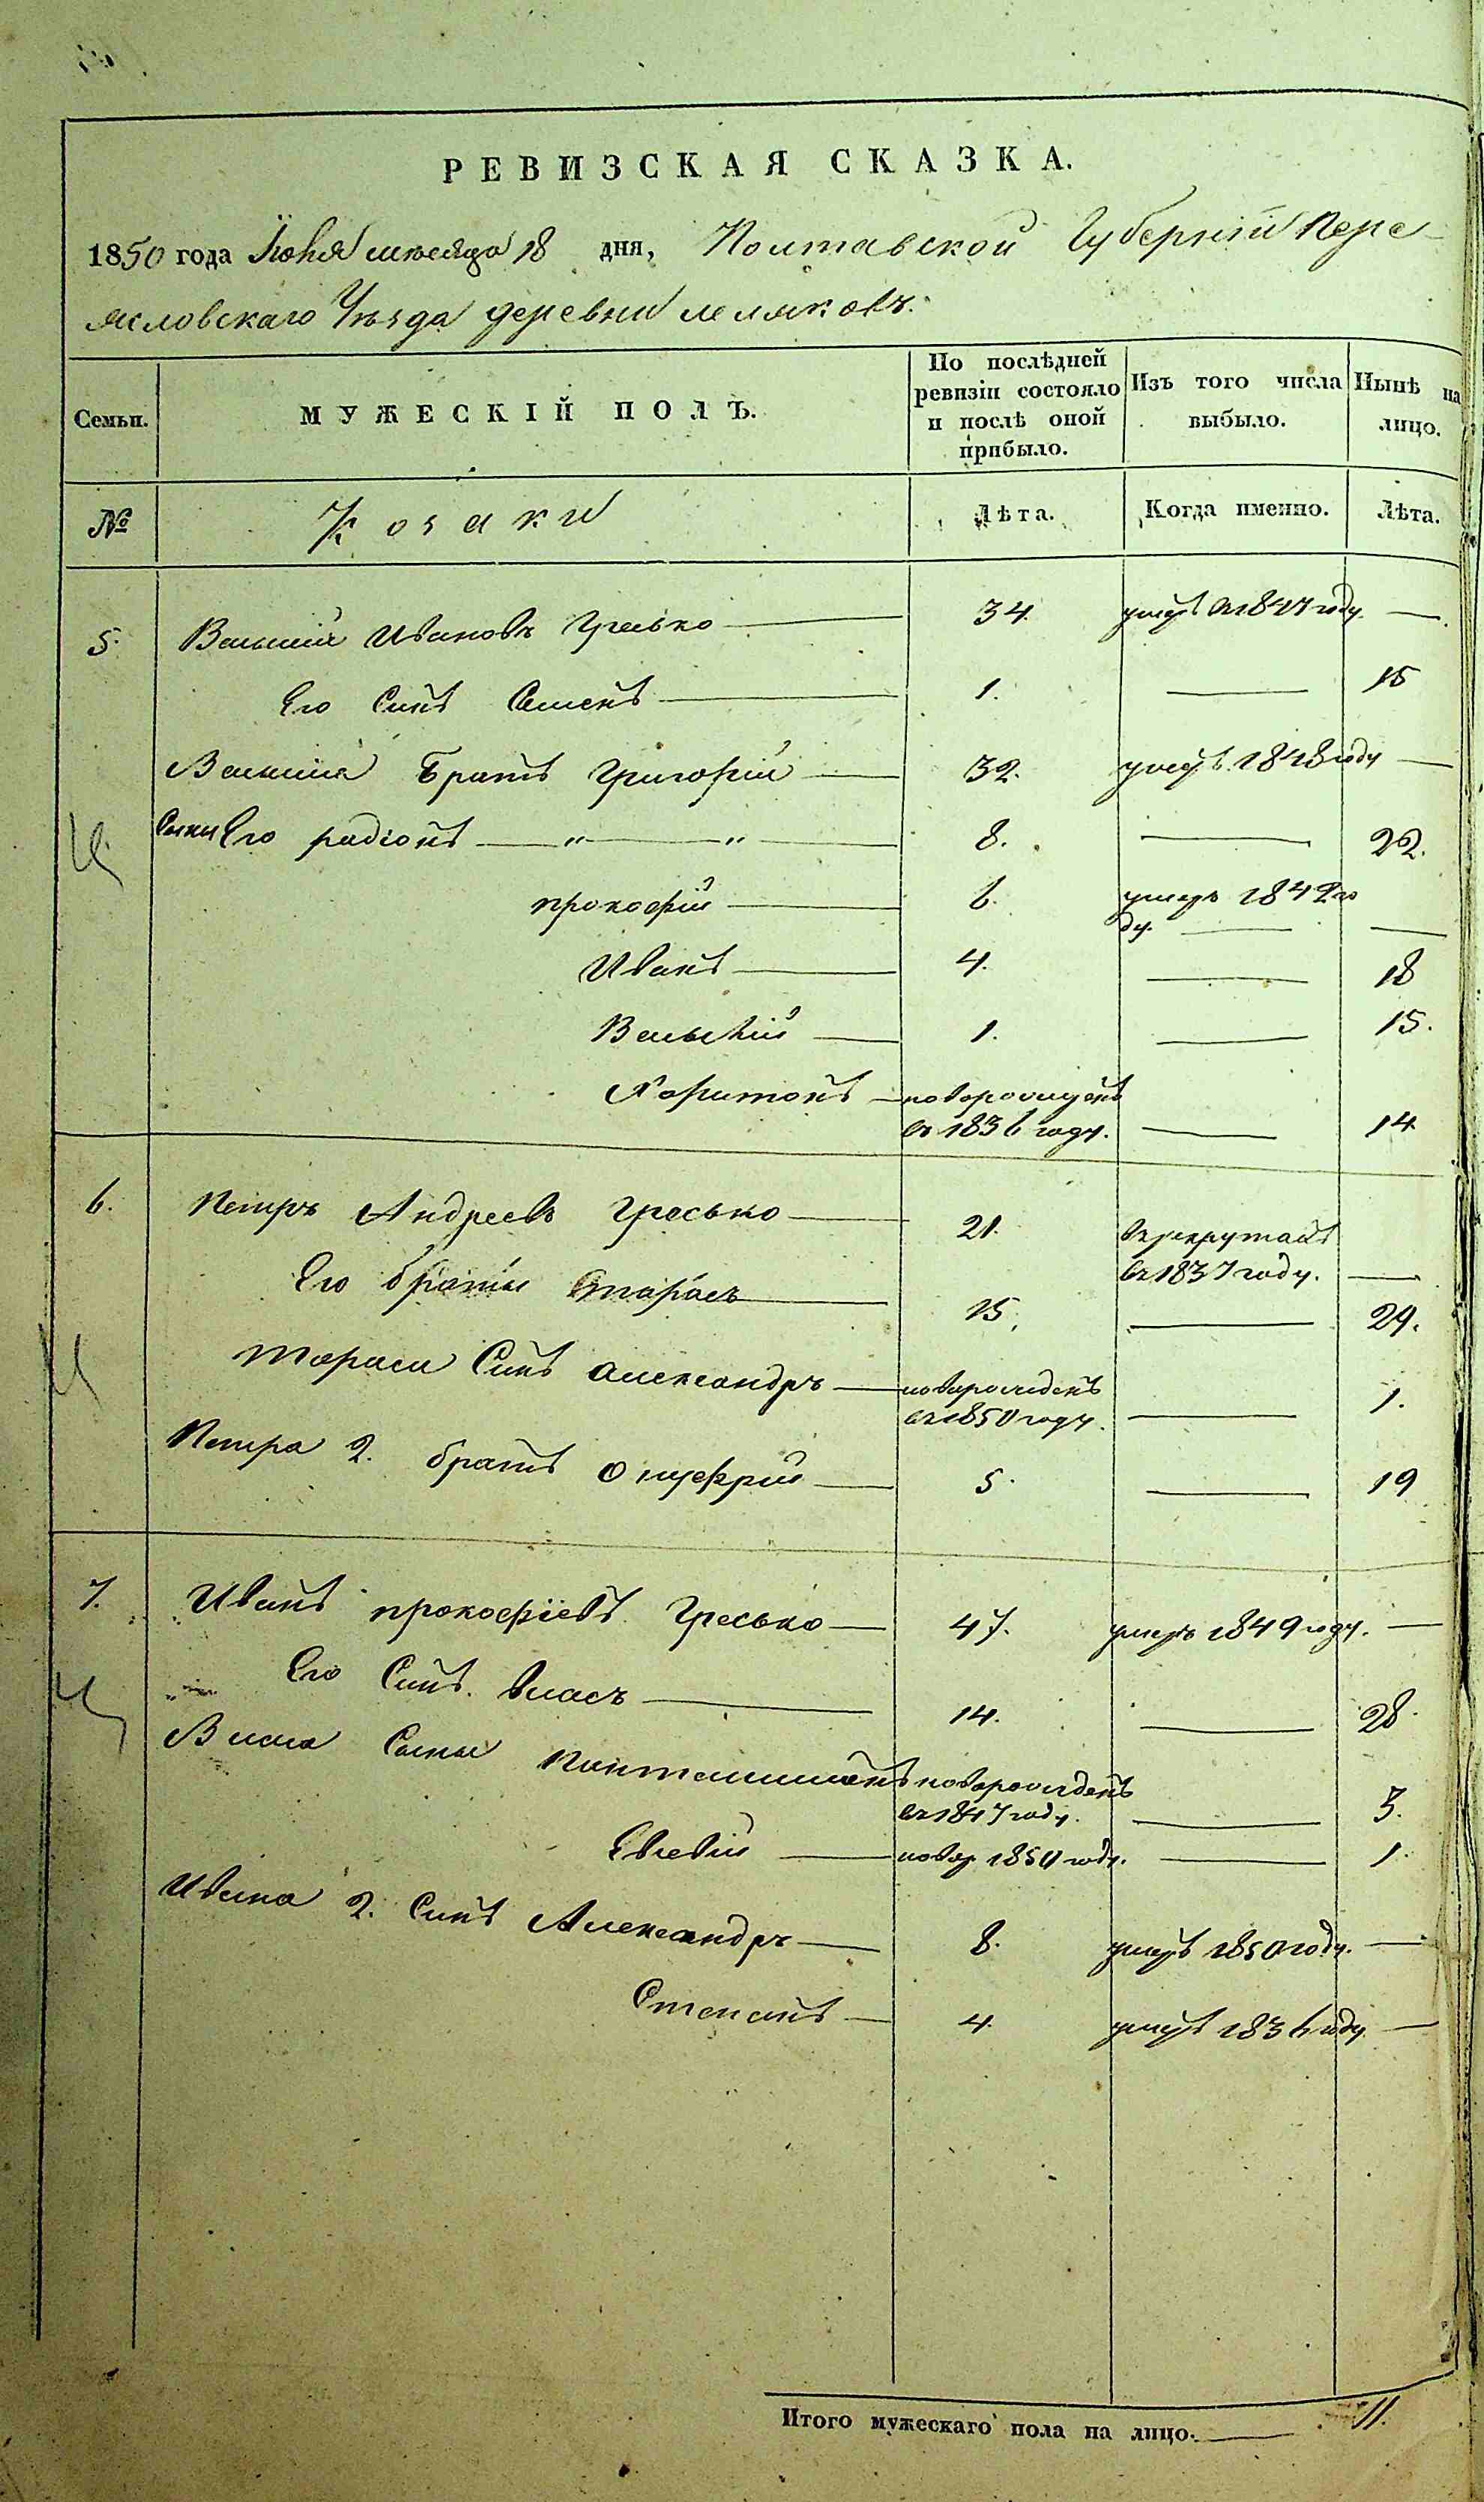 РЕВИЗСКАЯ СКАЗКА.
1850 года Іюня месяца 18 дня, Полтавской Губерніи Пере-
ясловскаго Уѣзда деревни Лемяковъ.
Семьи. МУЖЕСКІЙ ПОЛЪ. По послѣдней ревизіи состояло и послѣ оной прибыло. Изъ того числа выбыло. Нынѣ на лицо.
№ Козаки Лѣта. Когда именно. Лѣта.
5. Василій Ивановъ Гресько — 34. умеръ въ 1847 году. —
Его Синъ Семенъ — 1. — 15
Василія Братъ Григорій — 32. умеръ 1848 году —
Сыны Его радіонъ — " — " — 8. — 22.
прокофій — 6. умеръ 1842 го
ду. — —
Иванъ — 4. — 18
Василій — 1. — 15.
Харитонъ — новорожденъ
въ 1836 году. — 14
6. Петръ Андреевъ Гресько — 21. въ рекрутахъ
въ 1837 году. —
Его братья Тарасъ — 15. — 29.
Тараса Синъ Александръ — новорожденъ
въ 1850 году. — 1.
Петра 2. братъ Онуфрій — 5. — 19
7. Иванъ прокофіевъ Гресько — 47. умеръ 1849 году. —
Его Синъ. Власъ — 14. — 28.
Власа Сыны Понтелимонъ новорожденъ
въ 1847 году. — 3.
Евсевій — новор 1850 году. — 1.
Ивана 2. Синъ Александръ — 8. умеръ 1850 году. —
Степанъ — 4. умеръ 1836 году. —
Итого мужескаго пола на лицо. — 11.